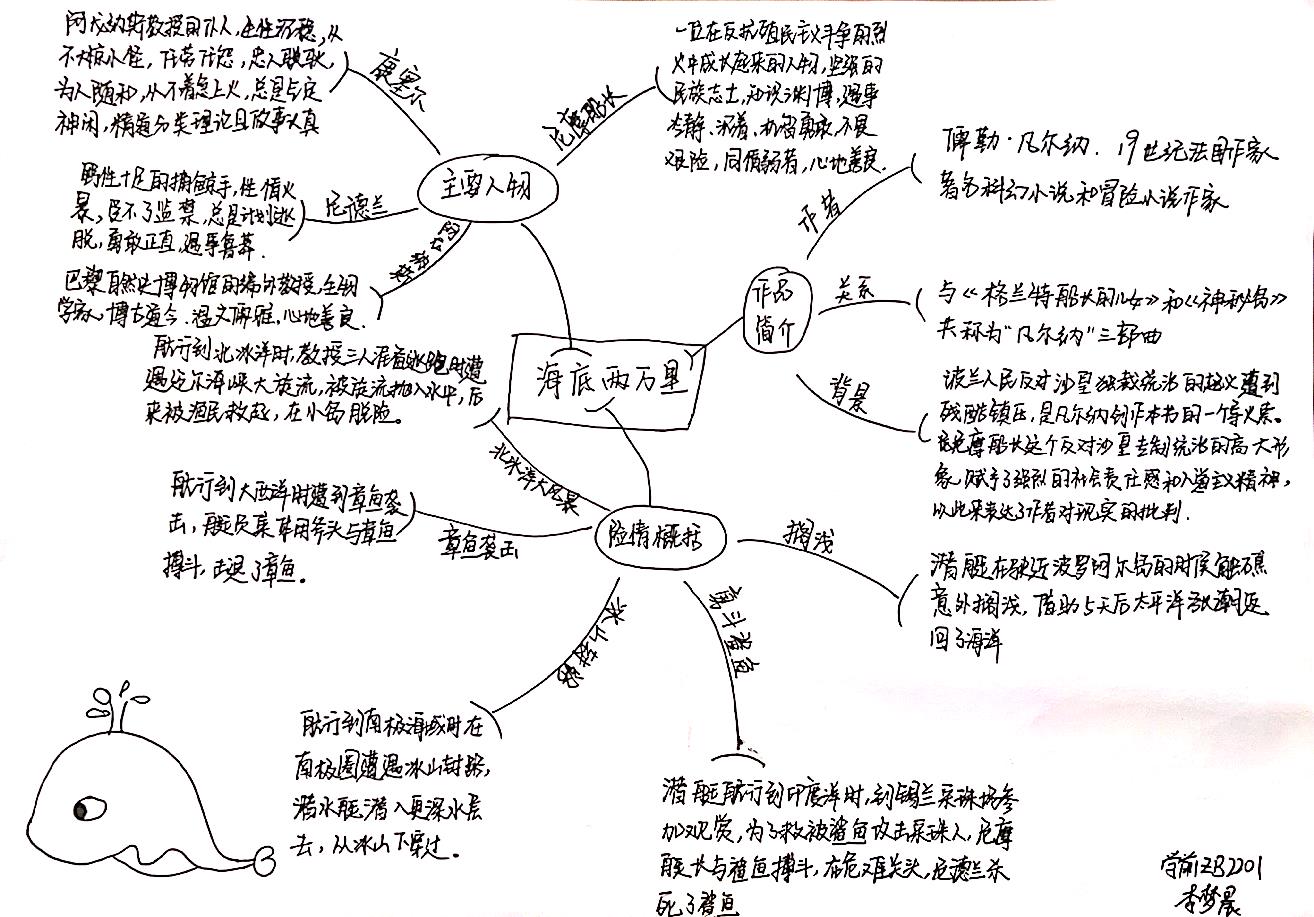 海底两万里
主要人物
康塞尔
阿龙纳斯教授的仆人,生性沉稳,从
不大惊小怪,任劳任怨,忠人职耿,
为人随和,从不着急上火,总是气定
神闲,精通分类理论且故事认真
尼摩船长
一位在反抗殖民主义斗争的烈
火中成长起来的人物,坚强的
民族志士,知识渊博,遇事
冷静、沉着、机智勇敢,不畏
艰险,同情弱者,心地善良.
尼德兰
野性十足的捕鲸手,性情火
暴,受不了监禁,总是计划逃
脱,勇敢正直,遇事鲁莽.
阿龙纳斯
巴黎自然史博物馆的编外教授,生物
学家,博古通今.温文儒雅,心地善良.
作品
简介
作者
儒勒·凡尔纳.19世纪法国作家
著名科幻小说和冒险小说作家
关系
与《格兰特船长的儿女》和《神秘岛》
共称为“凡尔纳”三部曲
背景
波兰人民反对沙皇独裁统治的起义遭到
残酷镇压,是凡尔纳创作本书的一个导火索。
尼摩船长这个反对沙皇专制统治的高大形
象,赋予了强烈的社会责任感和人道主义精神,
以此来表达了作者对现实的批判.
险情概括
北冰洋大风暴
航行到北冰洋时,教授三人准备逃跑时遭
遇迈尔海峡大旋流,被旋流抛入水中,后
来被渔民救起,在小岛脱险。
章鱼袭击
航行到大西洋时遭到章鱼袭
击,艇员集体用斧头与章鱼
搏斗,击退了章鱼。
冰山封路
航行到南极海域时在
南极圈遭遇冰山封路,
潜水艇潜入更深水层
去,从冰山下穿过。
勇斗鲨鱼
潜艇航行到印度洋时,到锡兰采珠场参
加观赏,为了救被鲨鱼攻击采珠人,尼摩
艇长与鲨鱼搏斗,在危难关头,尼德兰杀
死了鲨鱼
搁浅
潜艇在驶近波罗阿尔岛的时候触礁
意外搁浅,借助5天后太平洋涨潮返
回了海洋
学前ZB2201
李梦晨